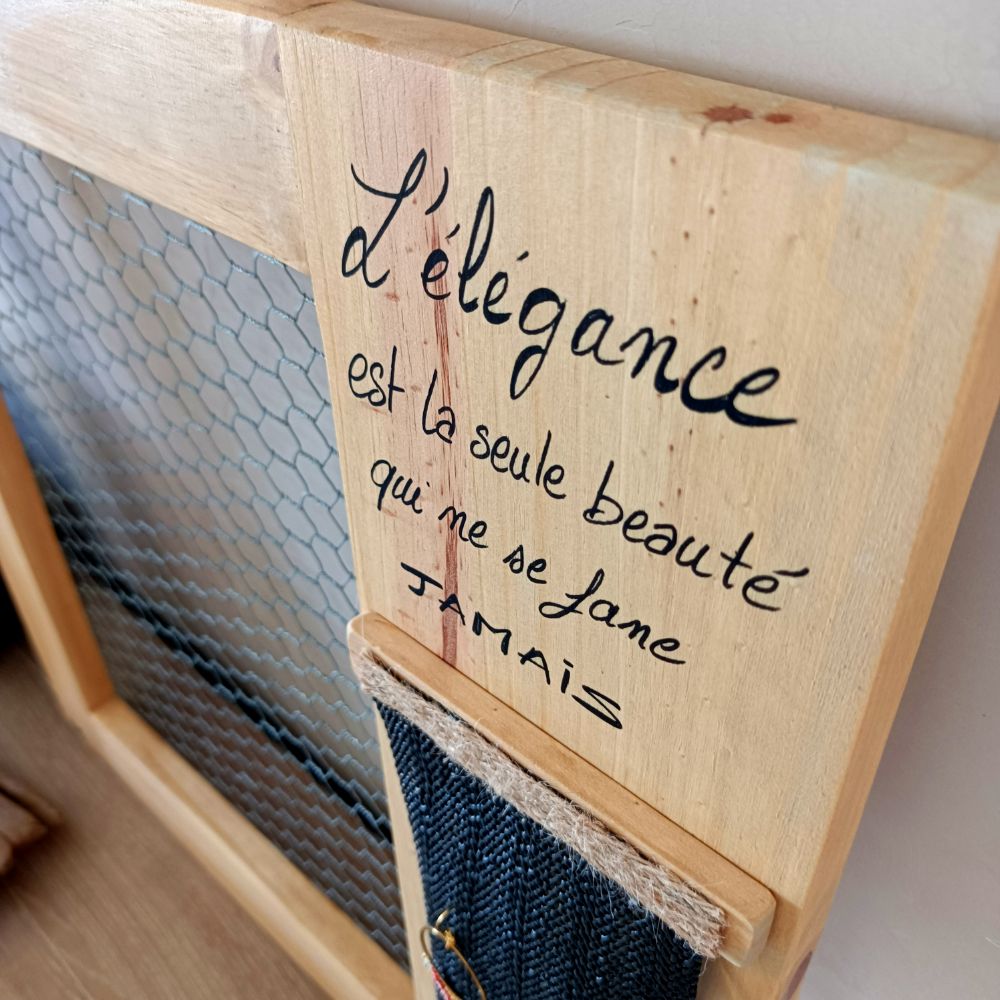 L'élégance
est la seule beauté
qui ne se fane
JAMAiS